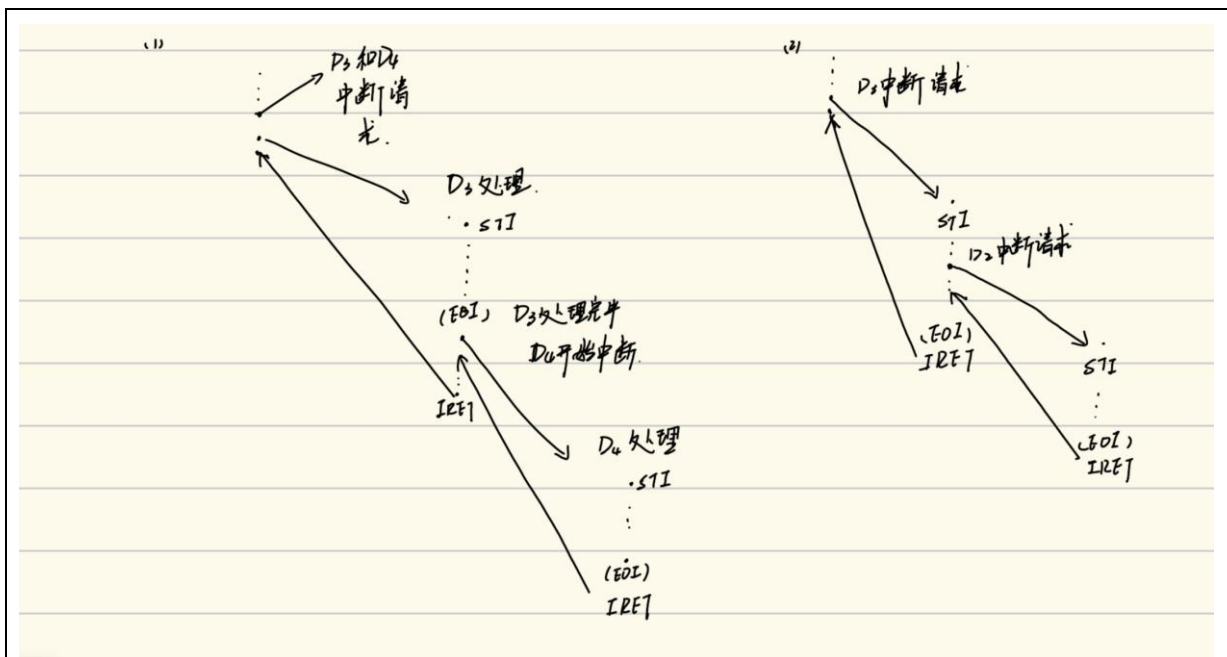 (1)
D3和D4
中断请
求.
D3处理.
STI
(EOI) D3处理完毕
D4开始中断.
IRET
D4处理
STI
(EOI)
IRET
(2)
D3中断请求
STI
D2中断请求
(EOI)
IRET
STI
(EOI)
IRET